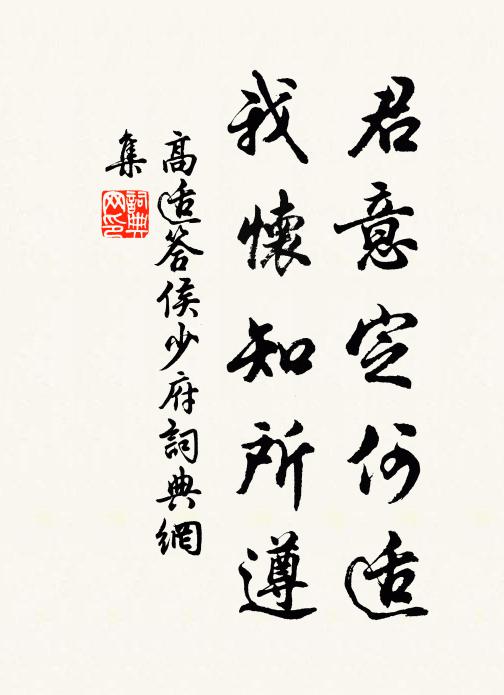 君意定何适
我懷知所遵
高适答侯少府詞典網
集
詞典
网印